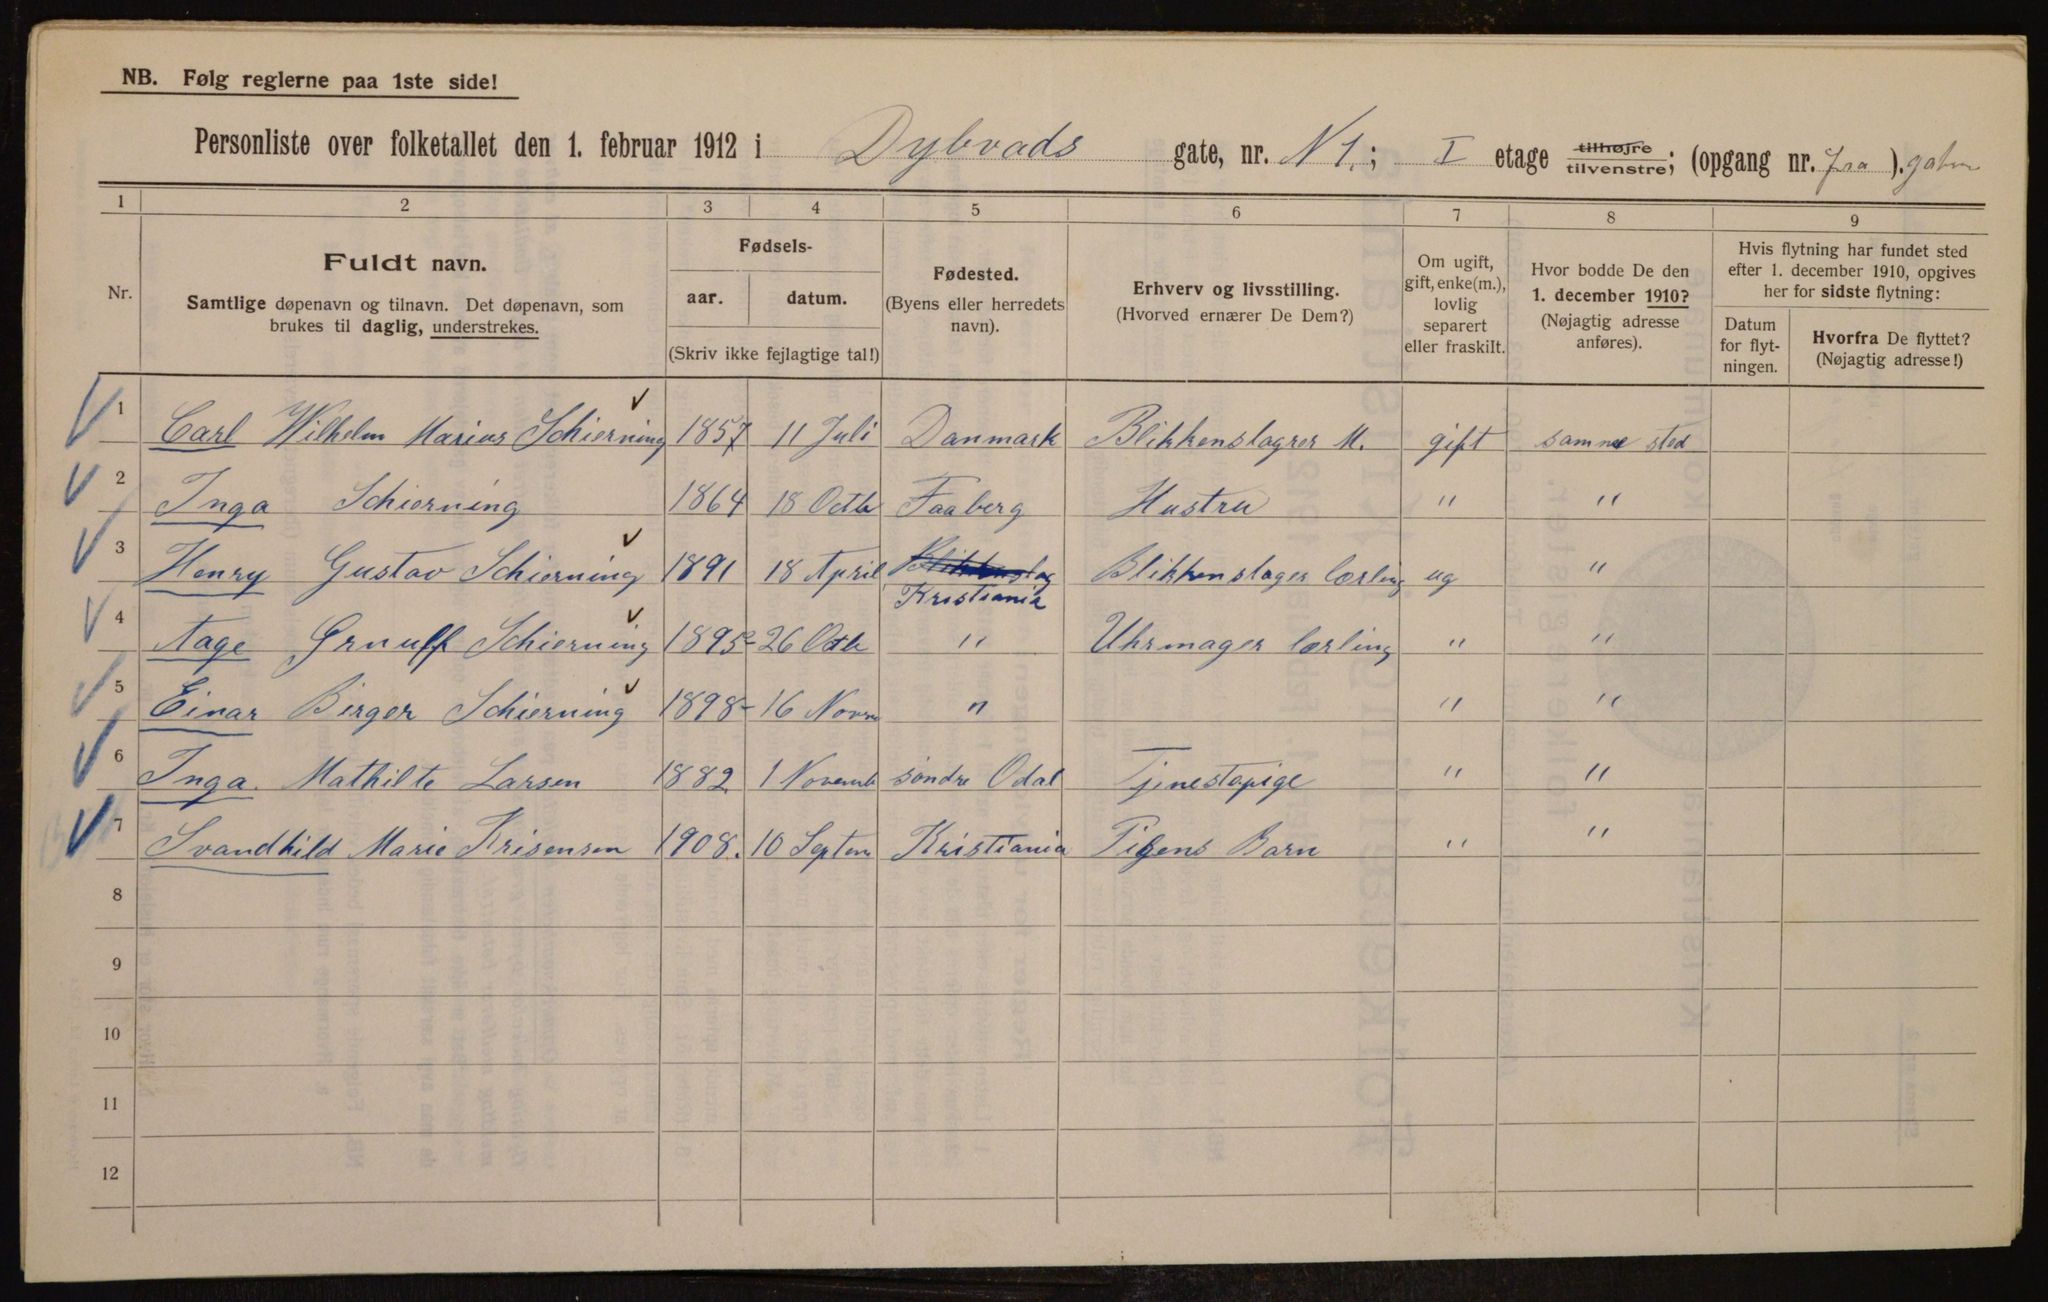 NB. Følg reglerne paa 1ste side!
Personliste over folketallet den 1. februar 1912 i Dybvads gate, nr. N 1.; I etage tilhøjre tilvenstre; (opgang nr. fra ). gaten
1 2 3 4 5 6 7 8 9
Nr.
Fuldt navn.
Samtlige døpenavn og tilnavn. Det døpenavn, som
brukes til daglig, understrekes.
Fødsels-
aar. datum.
(Skriv ikke fejlagtige tal!)
Fødested.
(Byens eller herredets
navn).
Erhverv og livsstilling.
(Hvorved ernærer De Dem?)
Om ugift,
gift, enke(m.),
lovlig
separert
eller fraskilt.
Hvor bodde De den
1. december 1910?
(Nøjagtig adresse
anføres).
Hvis flytning har fundet sted
efter 1. december 1910, opgives
her for sidste flytning:
Datum
for flyt-
ningen.
Hvorfra De flyttet?
(Nøjagtig adresse!)
1 Carl Wilhelm Marius Schierning 1857 11 Juli Danmark Blikkenslagrer M. gift samme sted
2 Inga Schierning 1864 18 Octb Faaberg Hustru " "
3 Henry Gustav Schierning 1891 18 April Blikkenslag Kristiania Blikkenslager lærling ug "
4 Aage Schierning 1895 26 Octb " Uhrmager lærling " "
5 Einar Birger Schierning 1898 16 Novm " " "
6 Inga Mathilte Larsen 1882 1 Novemb søndre Odal Tjenestepige " "
7 Svandhild Marie Krisensen 1908. 10 Septem Kristiania Pigens Barn " "
8
9
10
11
12